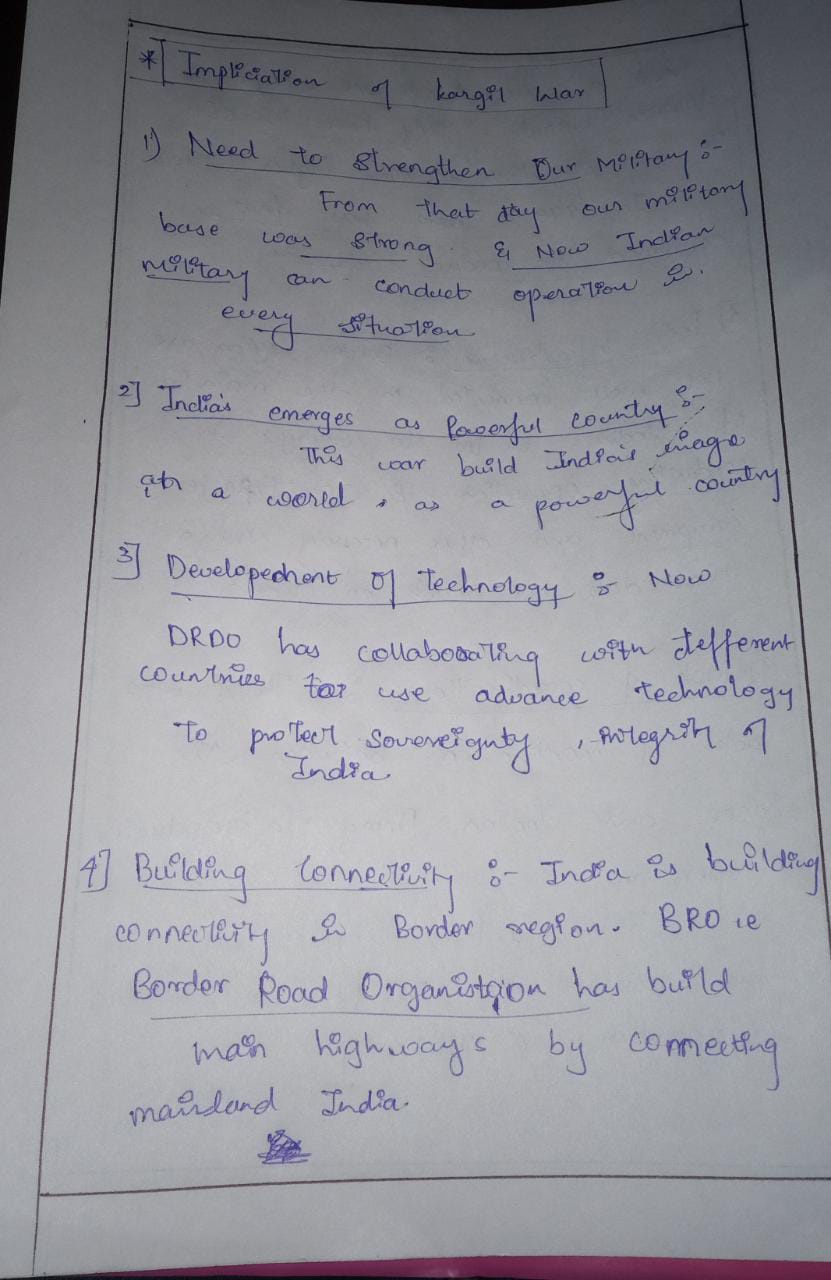 * Impliciation of kargil War
1) Need to Strengthen Our Military :-
From that day our military
base was strong & Now Indian
military can conduct operation in
every situation
2] India's emerges as Powerful Country :-
This war build India's image
at a world, as a powerful country
3] Developechent of Technology :- Now
DRDO has collaborating with defferent
countries for use advance technology
To protect Sovereignty, integrity of
India.
4] Building Connectivity :- India is building
connectivity in Border region. BRO ie
Border Road Organistaion has build
main highways by connecting
mainland India.